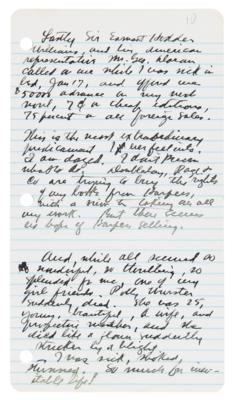 10
Lastly Sir Earnest Hodder
Williams, and his American
representative Mr. Geo. Doran
called on me while I was sick in
bed, Jan 17, and offered me
$5000 advance on my next
novel, 7¢ on cheap editions,
75 percent on all foreign sales.
This is the most extraordinary
predicament I ever felt in.
I am dazed. I don't know
what to do. Doubleday, Page &
Co are trying to buy the rights
of my books from Harpers,
with a view to taking on all
my work. But there seems
no hope of Harpers selling.
And, while all seemed so
wonderful, so thrilling, so
splendid for me, one of my
girl friends, Polly Wurster
suddenly died. She was 25,
young, beautiful, a wife, and
prospective mother, and she
died like a flower suddenly
stricken by a blight.
I was sick, shocked,
stunned. So much for inevitable
life!